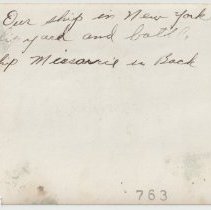 Our ship in New York
yard and batt
hip Missourie in Back
763